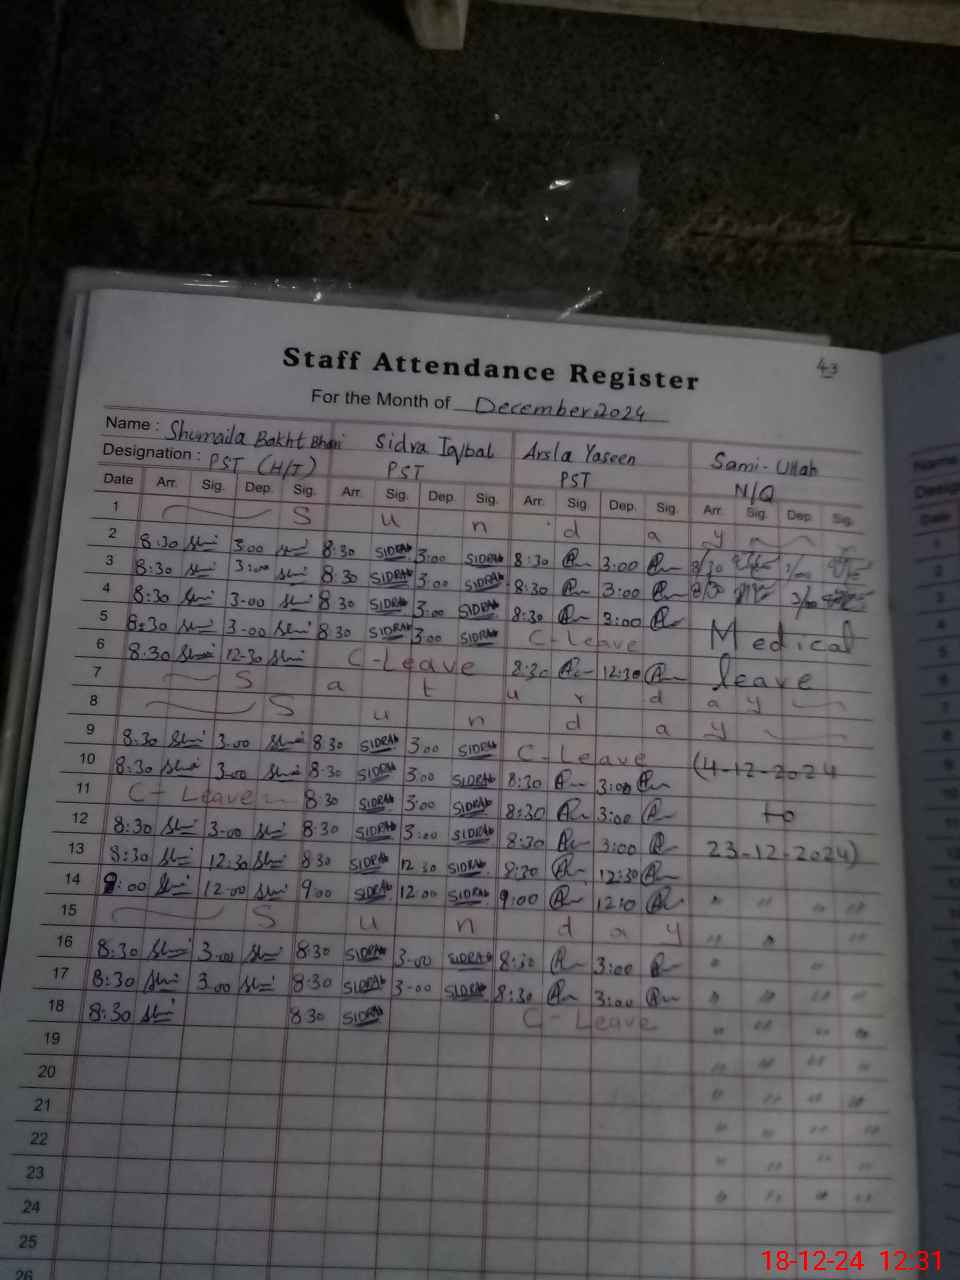 43
Staff Attendance Register
For the Month of December 2024
Name : Shumaila Bakht Bhari Sidra Iqbal Arsla Yaseen Sami-Ullah
Designation : PST (H/T) PST PST N/Q
Date Arr. Sig. Dep. Sig. Arr. Sig. Dep. Sig. Arr. Sig. Dep. Sig. Arr. Sig. Dep. Sig.
1 S u n d a y
2 8:30 3:00 8:30 SIDRA 3:00 SIDRA 8:30 3:00 8/30
3 8:30 3:00 8:30 SIDRA 3:00 SIDRA 8:30 3:00 8/30
4 8:30 3-00 8:30 SIDRA 3:00 SIDRA 8:30 3:00 Medical
5 8:30 3-00 8:30 SIDRA 3:00 SIDRA C-Leave
6 8:30 12-30 C-Leave 8:30 12:30 leave
7 S a t u r d a y
8 S u n d a y
9 8:30 3:00 8:30 SIDRA 3:00 SIDRA C-Leave (4-12-2024
10 8:30 3:00 8:30 SIDRA 3:00 SIDRA 8:30 3:00
11 C-Leave 8:30 SIDRA 3:00 SIDRA 8:30 3:00 to
12 8:30 3-00 8:30 SIDRA 3:00 SIDRA 8:30 3:00 23-12-2024)
13 8:30 12:30 8:30 SIDRA 12:30 SIDRA 8:30 12:30
14 9:00 12-00 9:00 SIDRA 12:00 SIDRA 9:00 12:0
15 S u n d a y
16 8:30 3-00 8:30 SIDRA 3-00 SIDRA 8:30 3:00
17 8:30 3:00 8:30 SIDRA 3-00 SIDRA 8:30 3:00
18 8:30 8:30 SIDRA C-Leave
19
20
21
22
23
24
25
26
18-12-24 12:31